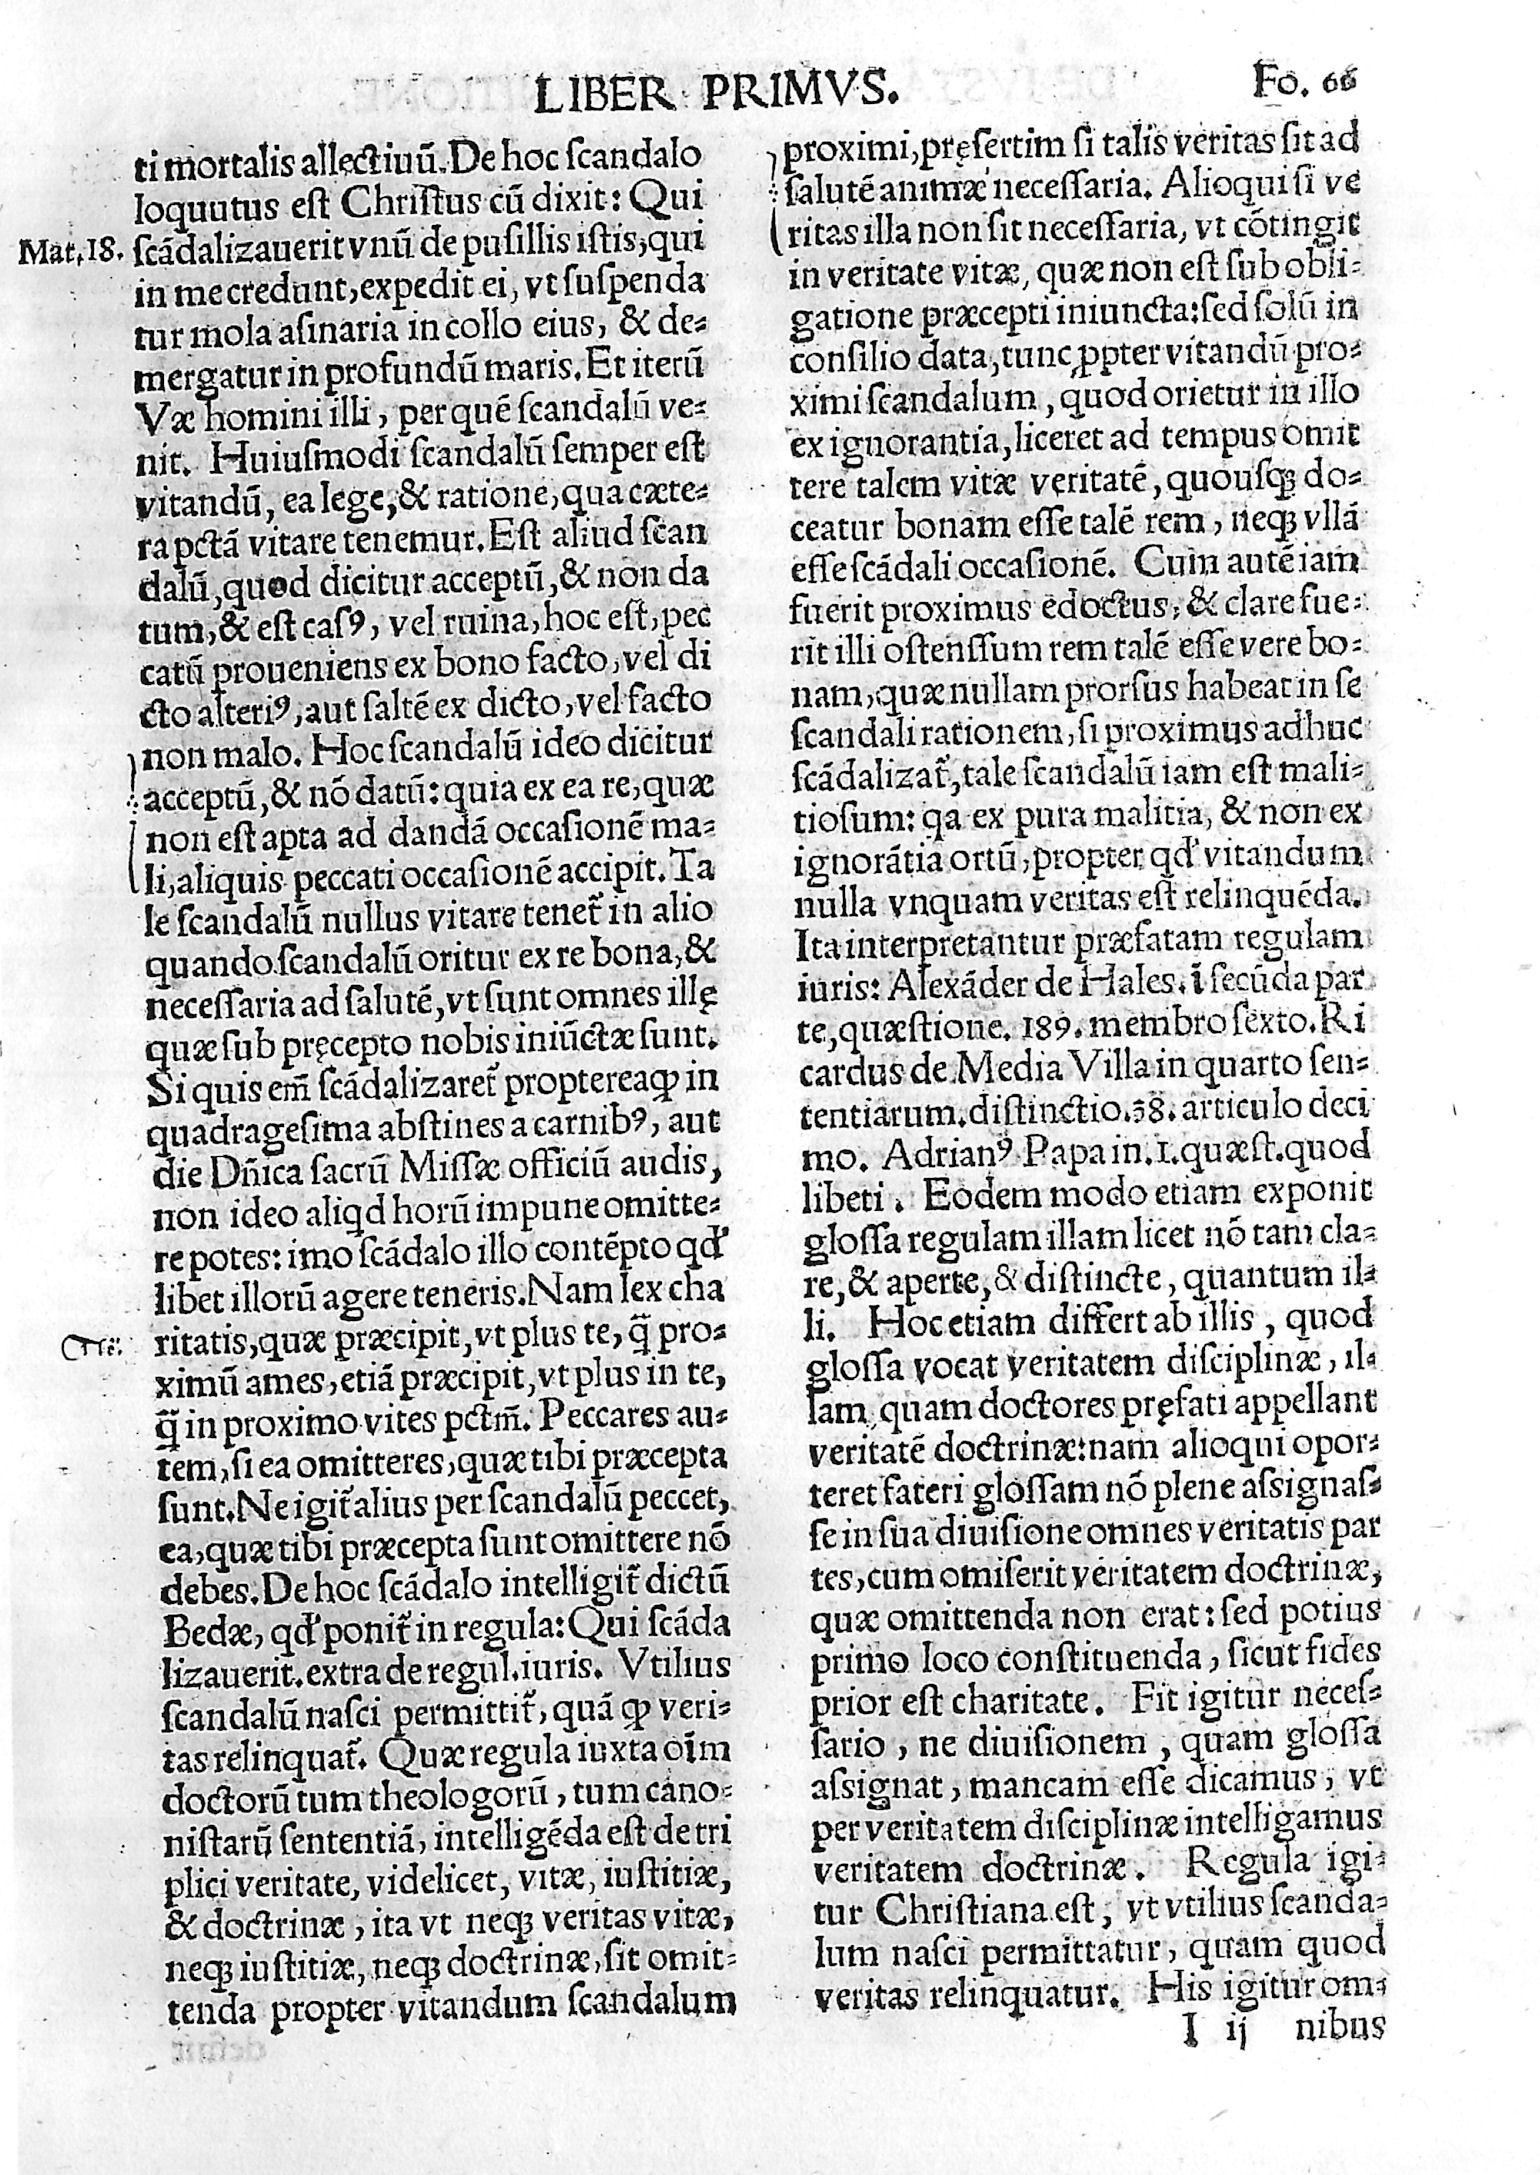 LIBER PRIMVS.
Fo. 66
ti mortalis allectiuũ. De hoc ſcandalo
loquutus eſt Chriſtus cũ dixit: Qui
Mat. 18.
ſcãdalizauerit vnũ de puſillis iſtis, qui
in me credunt, expedit ei, vt ſuſpenda
tur mola aſinaria in collo eius, & de-
mergatur in profundũ maris. Et iterũ
Væ homini illi, per quẽ ſcandalũ ve-
nit. Huiuſmodi ſcandalũ ſemper eſt
vitandũ, ea lege, & ratione, qua cæte-
ra pctã vitare tenemur. Eſt aliud ſcan
dalũ, quod dicitur acceptũ, & non da
tum, & eſt caſꝰ, vel ruina, hoc eſt, pec
catũ proueniens ex bono facto, vel di
cto alteriꝰ, aut ſaltẽ ex dicto, vel facto
non malo. Hoc ſcandalũ ideo dicitur
acceptũ, & nõ datũ: quia ex ea re, quæ
non eſt apta ad dandã occaſionẽ ma-
li, aliquis peccati occaſionẽ accipit. Ta
le ſcandalũ nullus vitare tenet᷑ in alio
quando ſcandalũ oritur ex re bona, &
neceſſaria ad ſalutẽ, vt ſunt omnes illę
quæ ſub pręcepto nobis iniũctæ ſunt.
Si quis em̃ ſcãdalizaret᷑ propterea ꝙ in
quadrageſima abſtines a carnibꝰ, aut
die Dñica ſacrũ Miſſæ officiũ audis,
non ideo aliqd horũ impune omitte-
re potes: imo ſcãdalo illo contẽpto qď
libet illorũ agere teneris. Nam lex cha
ritatis, quæ præcipit, vt plus te, q̃ pro-
ximũ ames, etiã præcipit, vt plus in te,
q̃ in proximo vites pctm̃. Peccares au-
tem, ſi ea omitteres, quæ tibi præcepta
ſunt. Ne igit᷑ alius per ſcandalũ peccet,
ea, quæ tibi præcepta ſunt omittere nõ
debes. De hoc ſcãdalo intelligit᷑ dictũ
Bedæ, qď ponit᷑ in regula: Qui ſcãda
lizauerit. extra de regul. iuris. Vtilius
ſcandalũ naſci permittit᷑, quã ꝙ veri-
tas relinquat᷑. Quæ regula iuxta oĩm
doctorũ tum theologorũ, tum cano-
niſtarũ ſententiã, intelligẽda eſt de tri
plici veritate, videlicet, vitæ, iuſtitiæ,
& doctrinæ, ita vt neqꝫ veritas vitæ,
neqꝫ iuſtitiæ, neqꝫ doctrinæ, ſit omit-
tenda propter vitandum ſcandalum
proximi, pręſertim ſi talis veritas ſit ad
ſalutẽ animæ neceſſaria. Alioqui ſi ve
ritas illa non ſit neceſſaria, vt cõtingit
in veritate vitæ, quæ non eſt ſub obli-
gatione præcepti iniuncta: ſed ſolũ in
conſilio data, tunc ꝓpter vitandũ pro-
ximi ſcandalum, quod orietur in illo
ex ignorantia, liceret ad tempus omit
tere talem vitæ veritatẽ, quouſqꝫ do-
ceatur bonam eſſe talẽ rem, neqꝫ vllã
eſſe ſcãdali occaſionẽ. Cum autẽ iam
fuerit proximus edoctus, & clare fue-
rit illi oſtenſſum rem talẽ eſſe vere bo-
nam, quæ nullam prorſus habeat in ſe
ſcandali rationem, ſi proximus adhuc
ſcãdalizat᷑, tale ſcandalũ iam eſt mali-
tioſum: qa ex pura malitia, & non ex
ignorãtia ortũ, propter qď vitandum
nulla vnquam veritas eſt relinquẽda.
Ita interpretantur præfatam regulam
iuris: Alexãder de Hales. ĩ ſecũda par
te, quæſtione. 189. membro ſexto. Ri
cardus de Media Villa in quarto ſen-
tentiarum. diſtinctio. 38. articulo deci
mo. Adrianꝰ Papa in. 1. quæſt. quod
libeti. Eodem modo etiam exponit
gloſſa regulam illam licet nõ tam cla-
re, & aperte, & diſtincte, quantum il-
li. Hoc etiam differt ab illis, quod
gloſſa vocat veritatem diſciplinæ, il-
lam quam doctores pręfati appellant
veritatẽ doctrinæ: nam alioqui opor-
teret fateri gloſſam nõ plene aſsignaſ-
ſe in ſua diuiſione omnes veritatis par
tes, cum omiſerit veritatem doctrinæ,
quæ omittenda non erat: ſed potius
primo loco conſtituenda, ſicut fides
prior eſt charitate. Fit igitur neceſ-
ſario, ne diuiſionem, quam gloſſa
aſsignat, mancam eſſe dicamus, vt
per veritatem diſciplinæ intelligamus
veritatem doctrinæ. Regula igi-
tur Chriſtiana eſt, vt vtilius ſcanda-
lum naſci permittatur, quam quod
veritas relinquatur. His igitur om-
I ij nibus